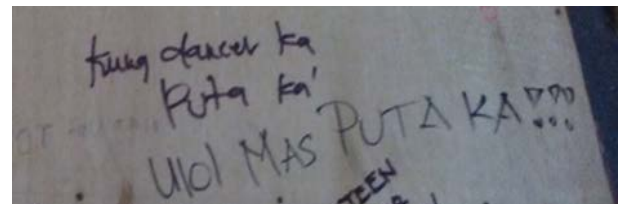 kung dancer ka
Puta ka'
Ulol MAS PUTA KA!!!
TEEN